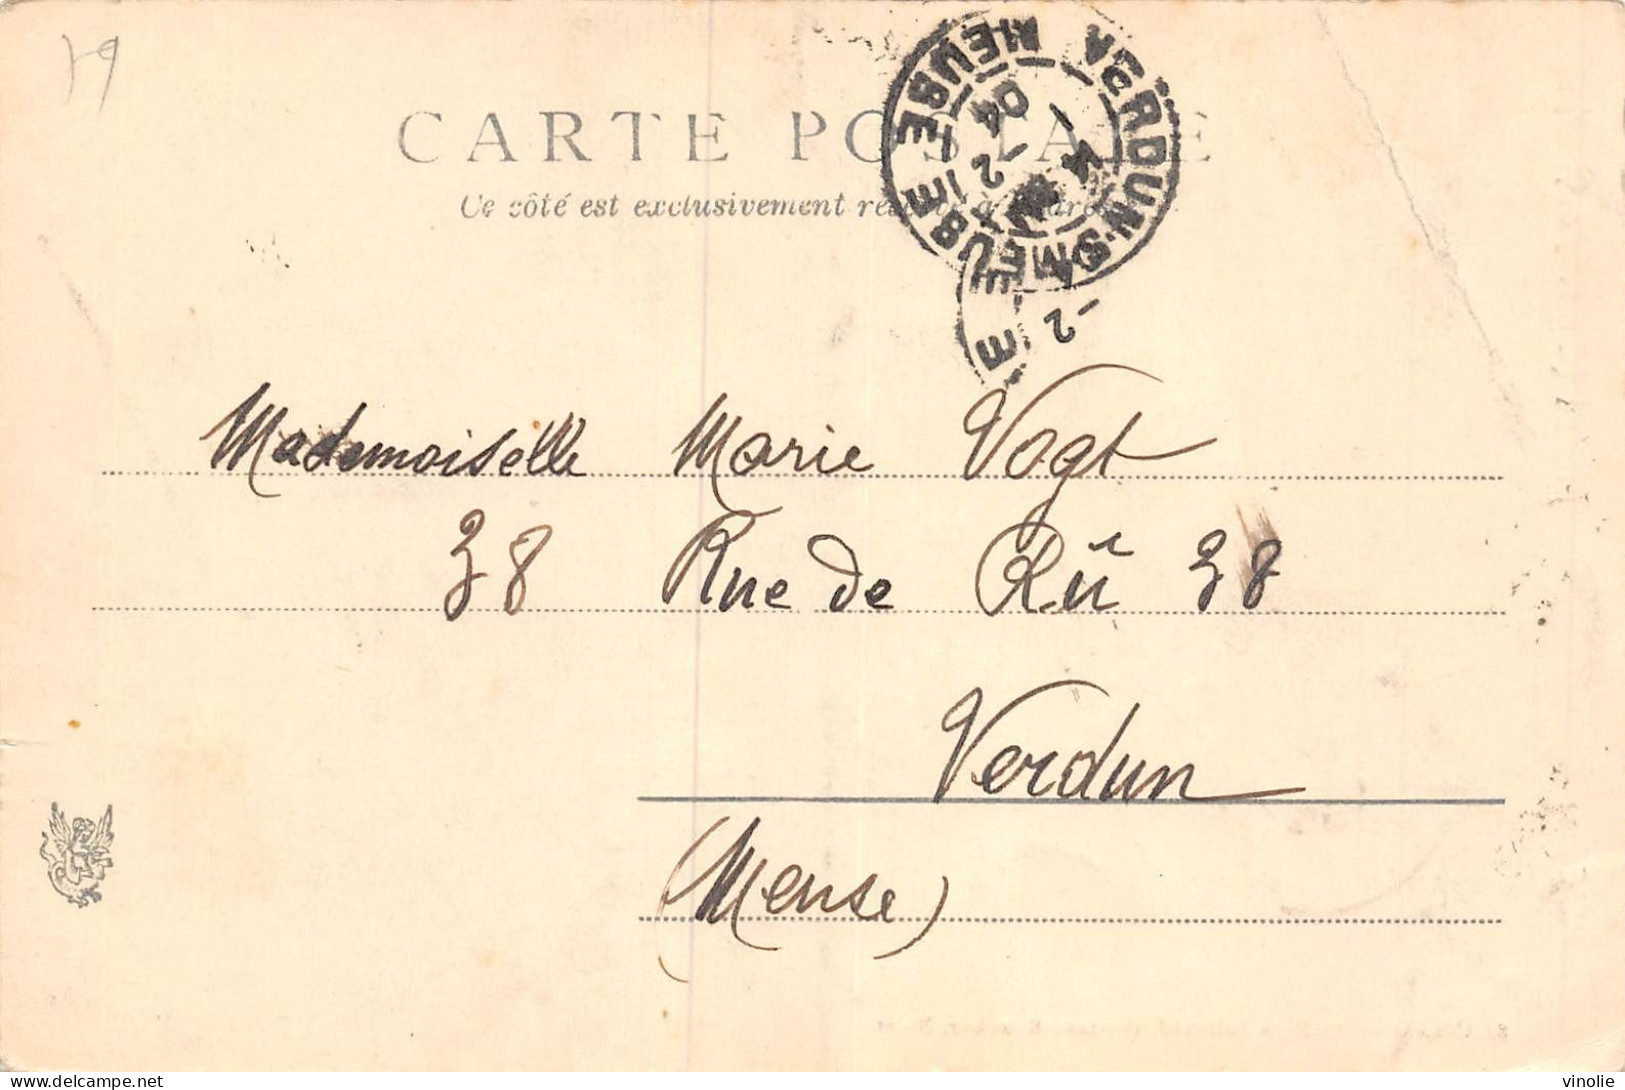 19
CARTE POSTALE
Ce côté est exclusivement réservé à l'adresse
VERDUN-S-MEUSE
MEUSE
2
04
MEUSE
-2
Mademoiselle Marie Vogt
38 Rue de Rû 38
Verdun
(Meuse)
delcampe.net
vinolie